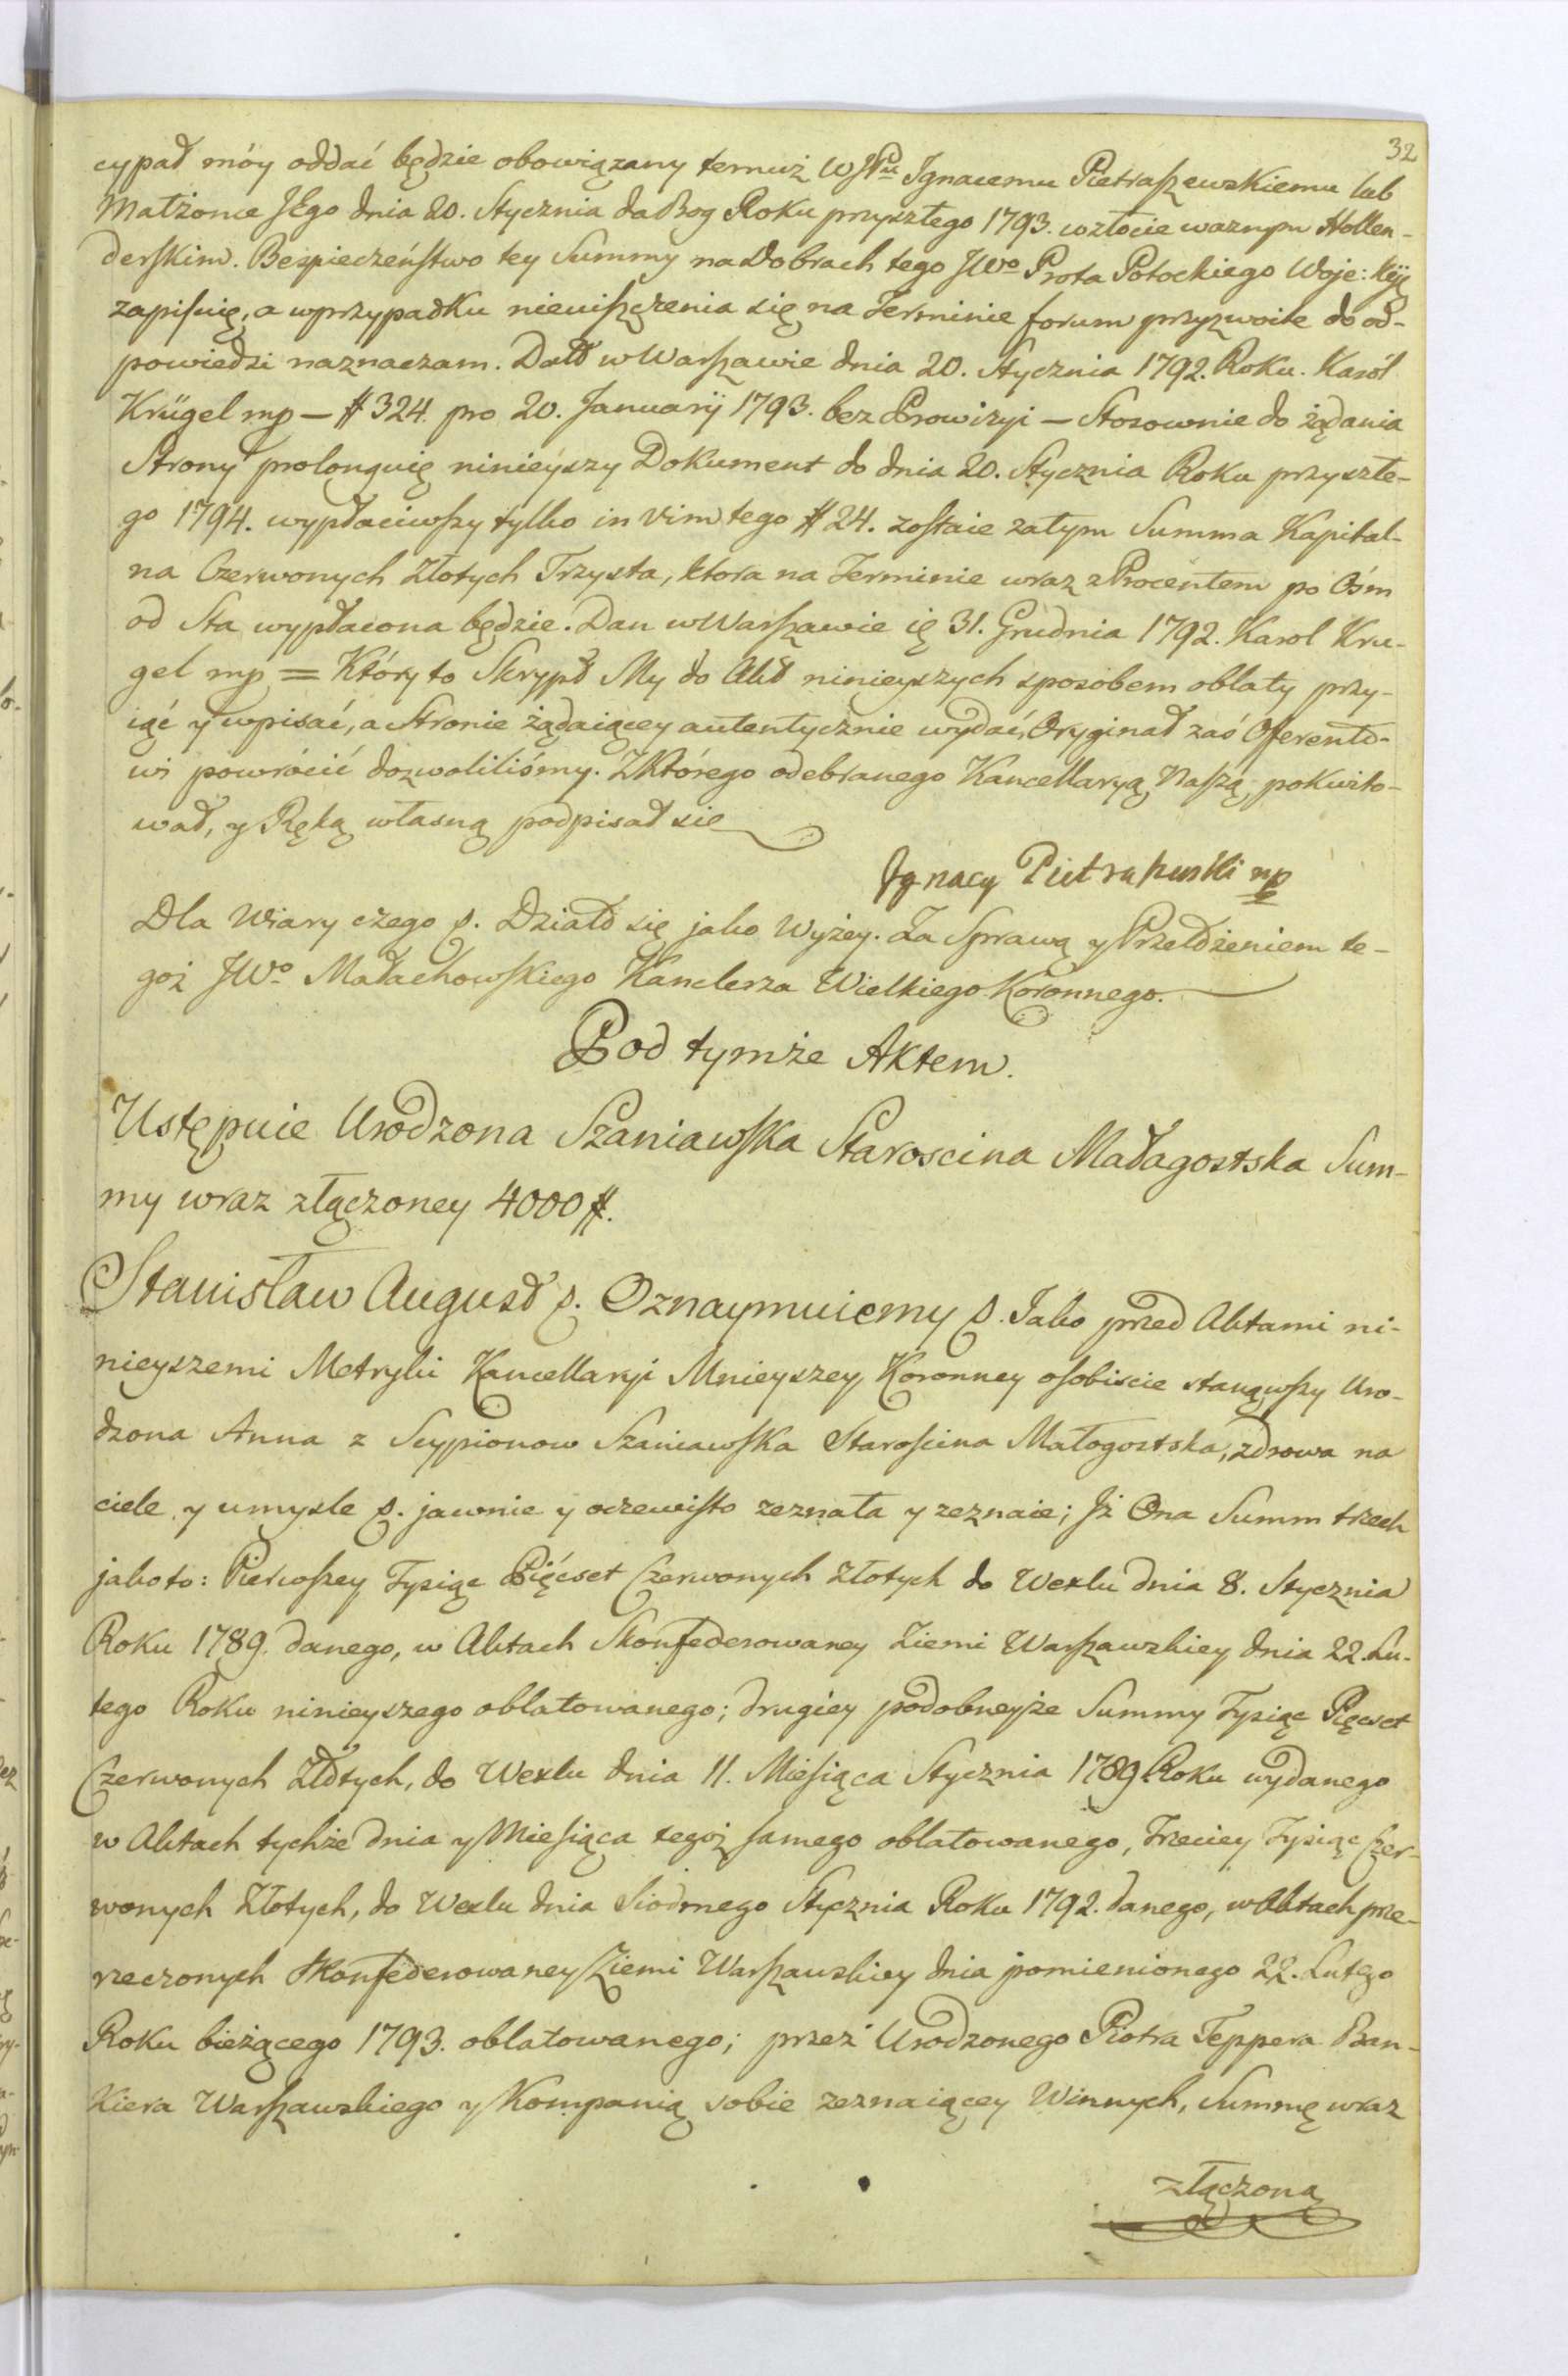 32
cypał móy oddać będzie obowiązany temuż WJPu Ignacemu Pietraszewskiemu lub
Małżonce JEgo dnia 20. Stycznia da Bog Roku przyszłego 1793. w złocie ważnym Hollen-
derskim. Bespieczeństwo tey Summy na Dobrach tego JWo Prota Potockiego Woje: Kij
zapisuię, a w przypadku nieuiszczenia się na Terminie forum przyzwoite do od-
powiedzi naznaczam. Datt w Warszawie dnia 20. Stycznia 1792. Roku. Karól
Krügel mp — # 324. pro 20. Januarij 1793. bez Prowizyi — Stosownie do żądania
Strony prolonguię ninieyszy Dokument do dnia 20. Stycznia Roku przyszłe-
go 1794. wypłaciwszy tylko in vim tego # 24. zostaie zatym Summa Kapital-
na Czerwonych Złotych Trzysta, ktora na Terminie wraz z Procentem po Ośm
od Sta wypłacona będzie. Dan w Warszawie ię 31. Grudnia 1792. Karol Kru-
gel mp = Który to Skrypt My do Akt ninieyszych sposobem oblaty przy-
iąć y wpisać, a Stronie żądaiącey autentycznie wydać, Oryginał zaś Oferento-
wi powrócić dozwoliliśmy. Z Którego odebranego Kancellaryą Naszą, pokwito-
wał, y Ręką własną podpisał się
Ignacy Pietraszewski mp
Dla Wiary czego p. Działo się jako Wyżey. Za Sprawą y Przełożeniem te-
goż JWo Małachowskiego Kanclerza Wielkiego Koronnego.
Pod tymże Aktem.
Ustępuie Urodzona Szaniawska Staroscina Małagostska Sum-
my wraz złączoney 4000 #.
Stanisław August p. Oznaymuiemy p. Jako przed Aktami ni-
nieyszemi Metryki Kancellaryi Mnieyszey Koronney osobiscie stanąwszy Uro-
dzona Anna z Scypionow Szaniawska Starościna Małogostska, zdrowa na
ciele y umysle p. jawnie y oczewisto zeznała y zeznaie; Iż Ona Summ trzech
jako to: Pierwszey Tysiąc Pięćset Czerwonych Złotych do Wexlu dnia 8. Stycznia
Roku 1789. danego, w Aktach Skonfederowaney Ziemi Warszawskiey dnia 22. Lu-
tego Roku ninieyszego oblatowanego; drugiey podobneyże Summy Tysiąc Pięcset
Czerwonych Złotych, do Wexlu dnia 11. Miesiąca Stycznia 1789 Roku wydanego
w Aktach tychże dnia y Miesiąca tegoż samego oblatowanego, Trzeciey Tysiąc Czer-
wonych Złotych, do Wexlu dnia Siodmego Stycznia Roku 1792. danego, w Aktach prze-
rzeczonych Skonfederowaney Ziemi Warszawskiey dnia pomienionego 22. Lutego
Roku bieżącego 1793. oblatowanego; przez Urodzonego Piotra Teppera Ban-
kiera Warszawskiego y Kompanią sobie zeznaiącey Winnych, Summę wraz
złączoną